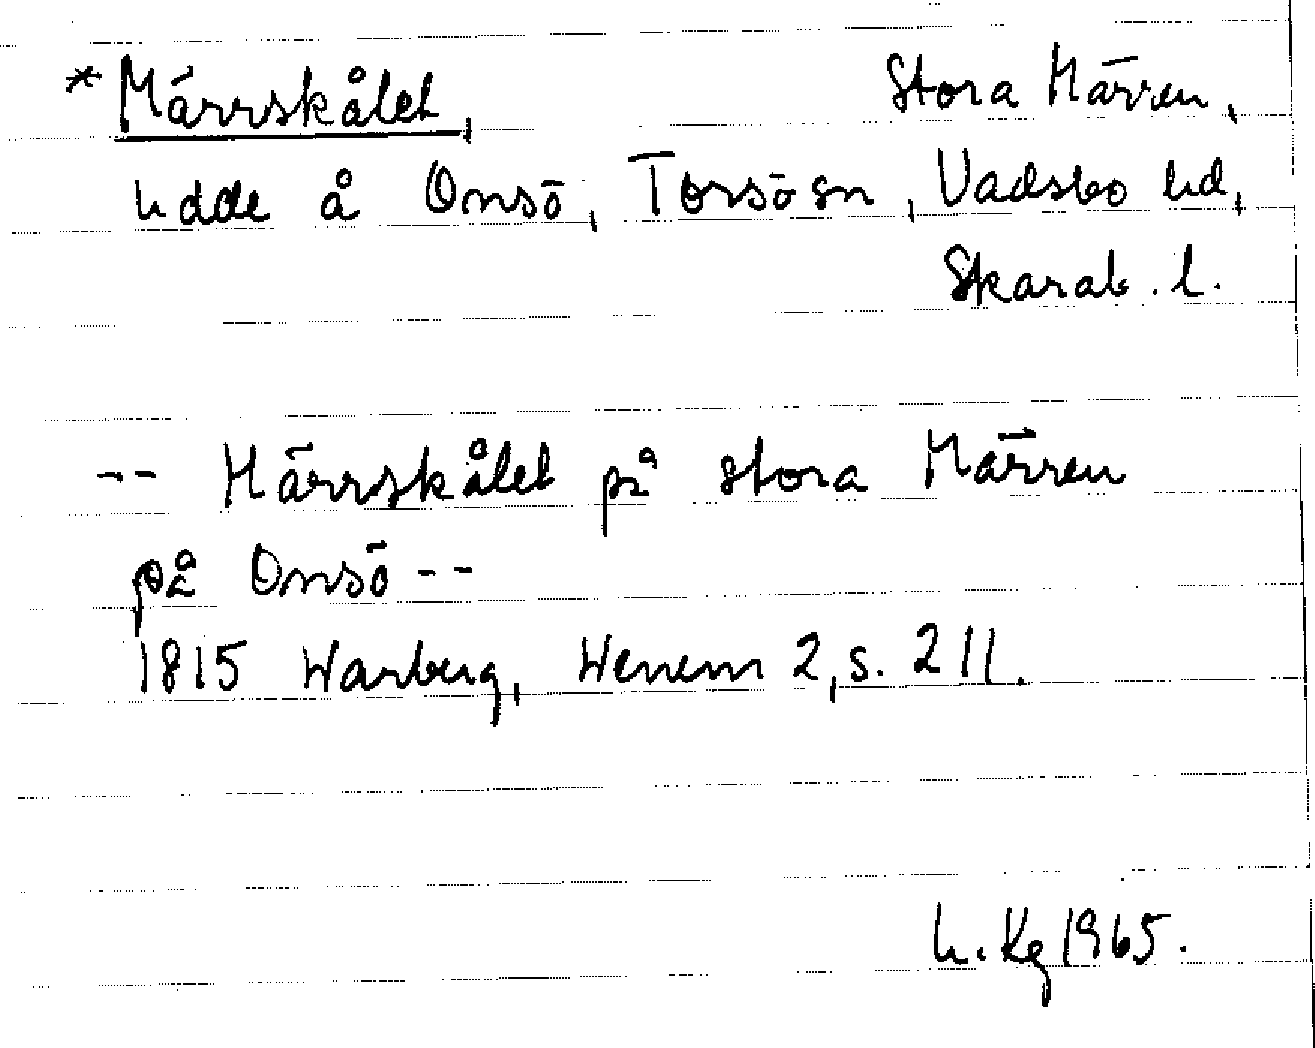 *Märrskålet, Stora Märren,
udde å Onsö, Torsö sn, Vadsbo hd,
Skarab. l.
-- Märrskålet på stora Märren
på Onsö --
1815 Warberg, Wenern 2, s. 211.
h. Kg 1965.